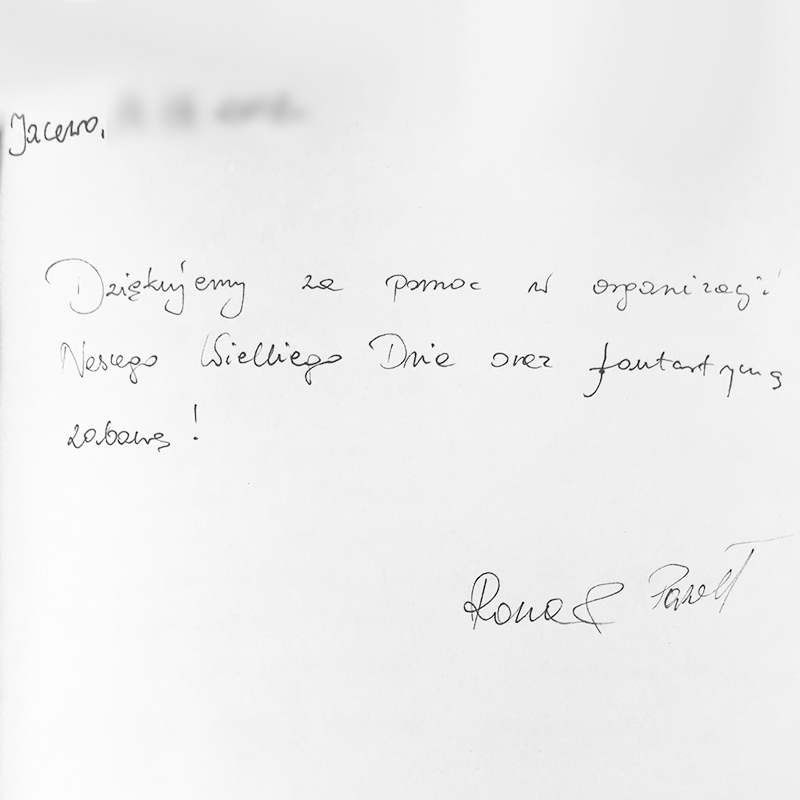 Jacewo,
Dziękujemy za pomoc w organizacji
Naszego Wielkiego Dnia oraz fantastyczną
zabawę!
& Paweł